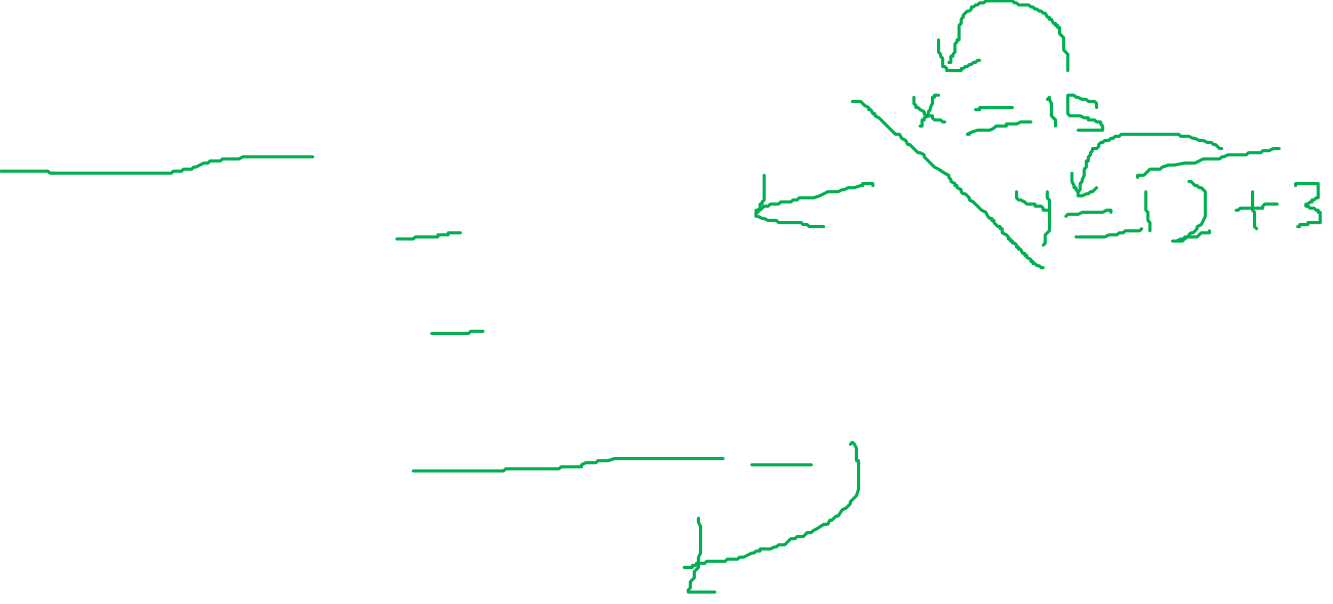 x = 15
y = 12 + 3